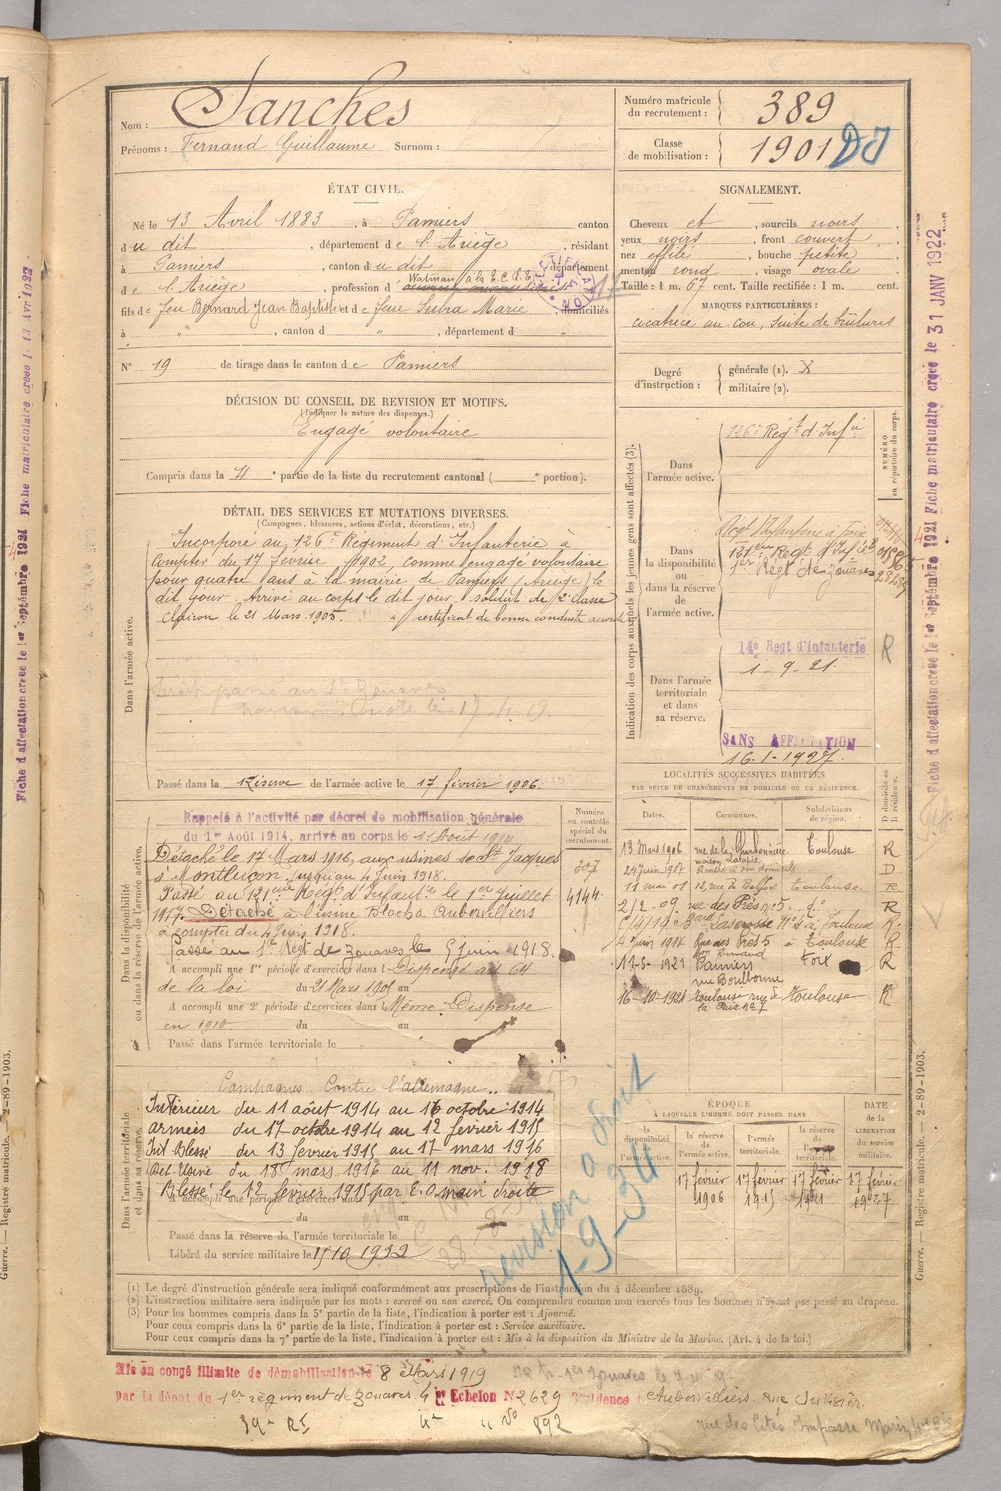 Nom : Sanches
Prénoms : Fernand Guillaume Surnom :
Numéro matricule du recrutement : 389
Classe de mobilisation : 1901 DJ
ÉTAT CIVIL.
Né le 13 Avril 1883, à Pamiers canton
du dit, département de l'Ariège, résidant
à Pamiers, canton du dit, département
de l'Ariège, profession d' Watman à la
fils de feu Bernard Jean Baptiste et de feue Subra Marie, domiciliés
à " , canton d " , département d "
N° 19 de tirage dans le canton de Pamiers
SIGNALEMENT.
Cheveux et, sourcils noirs
yeux noirs, front couvert,
nez effilé, bouche petite
menton rond, visage ovale
Taille : 1 m. 67 cent. Taille rectifiée : 1 m. cent.
MARQUES PARTICULIÈRES :
cicatrice au cou, suite de brûlures
Degré d'instruction : générale (1). X
militaire (2).
DÉCISION DU CONSEIL DE REVISION ET MOTIFS.
(Indiquer la nature des dispenses.)
Engagé volontaire
Compris dans la 4e partie de la liste du recrutement cantonal ( e portion).
DÉTAIL DES SERVICES ET MUTATIONS DIVERSES.
(Campagnes, blessures, actions d'éclat, décorations, etc.)
Dans l'armée active.
Incorporé au 126e Régiment d'Infanterie à
compter du 17 février 1902, comme engagé volontaire
pour quatre ans à la mairie de Pamiers (Ariège) le
dit jour. Arrivé au corps le dit jour, soldat de 2e classe
Clairon le 21 Mars 1905. certificat de bonne conduite accordé
Passé dans la Réserve de l'armée active le 17 février 1906.
Indication des corps auxquels les jeunes gens sont affectés (3).
NUMÉRO au répertoire du corps.
Dans l'armée active. 126e Régt d'Infie
Dans la disponibilité ou dans la réserve de l'armée active.
Régt d'Infanterie à Foix
121eme Regt d'Infie
1er Régt de Zouaves
Dans l'armée territoriale et dans sa réserve.
14e Regt d'Infanterie R
1-9-21
SANS AFFECTATION
16-1-1927.
LOCALITÉS SUCCESSIVES HABITÉES
PAR SUITE DE CHANGEMENTS DE DOMICILE OU DE RÉSIDENCE.
Dates. Communes. Subdivisions de région. D domicile ou R résidence.
13 Mars 1906 rue de la Charbonnière Toulouse R
maison Latapie
24 juin 1907 Rentré à son domicile D
11 mai 08 12, rue de Toulouse R
2/2-09. rue des Prés n° 5. do R
à Toulouse R.
4 Juin 1914 Rue des Prés 5 à Toulouse R
11-3-1921 Pamiers Foix R
rue Bourbonne
16-10-1921 Toulouse rue de Toulouse R
la Paix n° 7
Dans la disponibilité ou dans la réserve de l'armée active.
Numéro au contrôle spécial du recrutement.
207
4144
Rappelé à l'activité par décret de mobilisation générale
du 1er Août 1914, arrivé au corps le 11 Août 1914
Détaché le 17 Mars 1916, aux usines de St Jacques
à Montluçon. Jusqu'au 4 Juin 1918.
Passé au 121eme Régt d'Infantie le 1er Juillet
1917. Détaché à l'usine Blocha Aubervilliers
à compter du 4 Juin 1918.
Passé au 1er Régt de Zouaves le 5 Juin 1918.
A accompli une 1re période d'exercices dans l Dispensé art 64
de la loi du 21 Mars 1905 au
A accompli une 2e période d'exercices dans l Même Dispense
en 1910. du au
Passé dans l'armée territoriale le
Dans l'armée territoriale et dans sa réserve.
Campagnes Contre l'allemagne
Intérieur du 11 août 1914 au 16 octobre 1914
armées du 17 octobre 1914 au 12 fevrier 1915
Int Blessé du 13 fevrier 1915 au 17 mars 1916
Det Usine du 18 mars 1916 au 11 nov. 1918
Blessé le 12 fevrier 1915 par E.O. main droite
A accompli une période d'exercices dans l
du au
Passé dans la réserve de l'armée territoriale le
Libéré du service militaire le 15/10 1932
revision a droit
1-9-34
ÉPOQUE À LAQUELLE L'HOMME DOIT PASSER DANS
DATE de la LIBÉRATION du service militaire.
la disponibilité de l'armée active. la réserve de l'armée active. l'armée territoriale. la réserve de l'armée territoriale.
17 février 1906 17 février 1915 17 février 1921 17 février 1927
(1) Le degré d'instruction générale sera indiqué conformément aux prescriptions de l'instruction du 4 décembre 1889.
(2) L'instruction militaire sera indiquée par les mots : exercé ou non exercé. On comprendra comme non exercés tous les hommes n'ayant pas passé au drapeau.
(3) Pour les hommes compris dans la 5e partie de la liste, l'indication à porter est : Ajourné.
Pour ceux compris dans la 6e partie de la liste, l'indication à porter est : Service auxiliaire.
Pour ceux compris dans la 7e partie de la liste, l'indication à porter est : Mis à la disposition du Ministre de la Marine. (Art. 4 de la loi.)
Mis en congé illimité de démobilisation le 8 Mars 1919
par le dépôt du 1er régiment de zouaves 4e Echelon N° 2629 Résidence Aubervilliers. Rue
892
rue des Cités Impasse
Fiche d'affectation créée le 1er Septembre 1921 Fiche matriculaire créée le 31 JANV 1922
Fiche d'affectation créée le 1er Septembre 1921 Fiche matriculaire créée le 11 Avr 1922
Guerre. — Registre matricule. — 2-89-1903.
Guerre. — Registre matricule. — 2-89-1903.